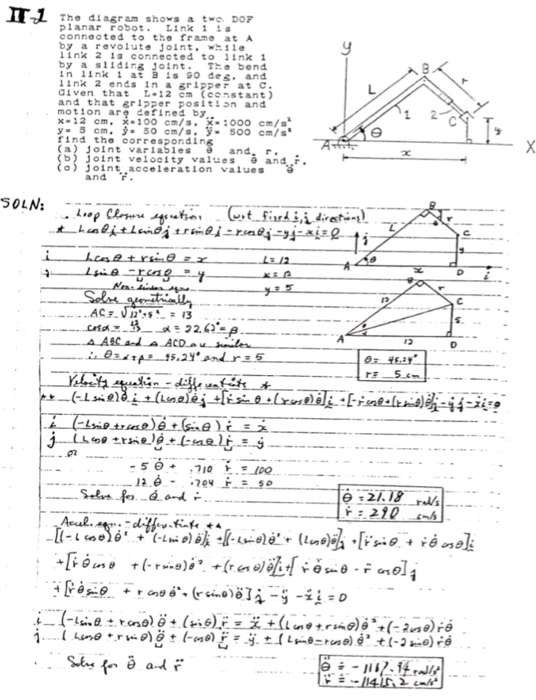 II-1
The diagram shows a two DOF
planar robot. Link 1 is
connected to the frame at A
by a revolute joint, while
link 2 is connected to link 1
by a sliding joint. The bend
in link 1 at B is 90 deg. and
link 2 ends in a gripper at C.
Given that L=12 cm (constant)
and that gripper position and
motion are defined by
x=12 cm, ẋ=100 cm/s, ẍ=1000 cm/s²
y= 5 cm, ẏ= 50 cm/s, ÿ= 500 cm/s²
find the corresponding
(a) joint variables θ and r,
(b) joint velocity values θ̇ and ṙ,
(c) joint acceleration values θ̈
and r̈.
y
B
r
L
1
2
C
y
A
θ
x
X
SOLN:
Loop Closure equation (wrt fixed i, j directions)
* Lcosθ i + Lsinθ j + r sinθ i - r cosθ j - y j - x i = 0
i Lcosθ + r sinθ = x L = 12
j Lsinθ - r cosθ = y x = 12
Non-linear eqns y = 5
Solve geometrically
AC = √12²+5² = 13
α = 22.62° = β
Δ ABC and Δ ACD are similar
∴ θ = α+β = 45.24° and r = 5
B
r
L
θ
C
j
y
A
θ
x
D
i
B
12
r
C
5
A
12
D
θ = 45.24°
r = 5 cm
Velocity equation - differentiate *
** (-Lsinθ)θ̇ i + (Lcosθ)θ̇ j + [ṙ sinθ + (r cosθ)θ̇] i + [-ṙ cosθ + (r sinθ)θ̇] j - ẏ j - ẋ i = 0
i (-Lsinθ + r cosθ) θ̇ + (sinθ) ṙ = ẋ
j (Lcosθ + r sinθ) θ̇ + (-cosθ) ṙ = ẏ
or
-5 θ̇ + .710 ṙ = 100
12 θ̇ - .704 ṙ = 50
Solve for θ̇ and ṙ
θ̇ = 21.18 rad/s
ṙ = 290 cm/s
Accel. eqn. - differentiate **
[(-Lcosθ)θ̇² + (-Lsinθ)θ̈] i + [(-Lsinθ)θ̇² + (Lcosθ)θ̈] j + [r̈ sinθ + ṙθ̇ cosθ] i
+ [ṙθ̇ cosθ + (-r sinθ)θ̇² + (r cosθ)θ̈] i + [ṙθ̇ sinθ - r̈ cosθ] j
+ [ṙθ̇ sinθ + r cosθ θ̇² + (r sinθ)θ̈] j - ÿ j - ẍ i = 0
i (-Lsinθ + r cosθ) θ̈ + (sinθ) r̈ = ẍ + (Lcosθ + r sinθ) θ̇² + (-2cosθ) ṙθ̇
j (Lcosθ + r sinθ) θ̈ + (-cosθ) r̈ = ÿ + (Lsinθ - r cosθ) θ̇² + (-2sinθ) ṙθ̇
Solve for θ̈ and r̈
θ̈ = -1167.94 rad/s²
r̈ = -11415.2 cm/s²